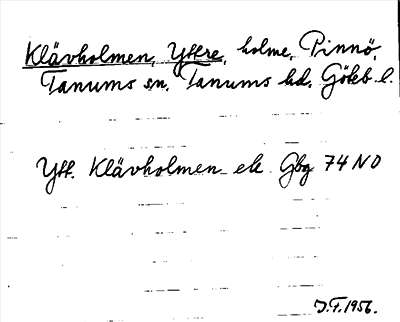 Klävholmen, Yttre, holme, Pinnö,
Tanums sn, Tanums hd, Göteb. l.
Ytt. Klävholmen ek Gbg 74 NO
J.F. 1956.